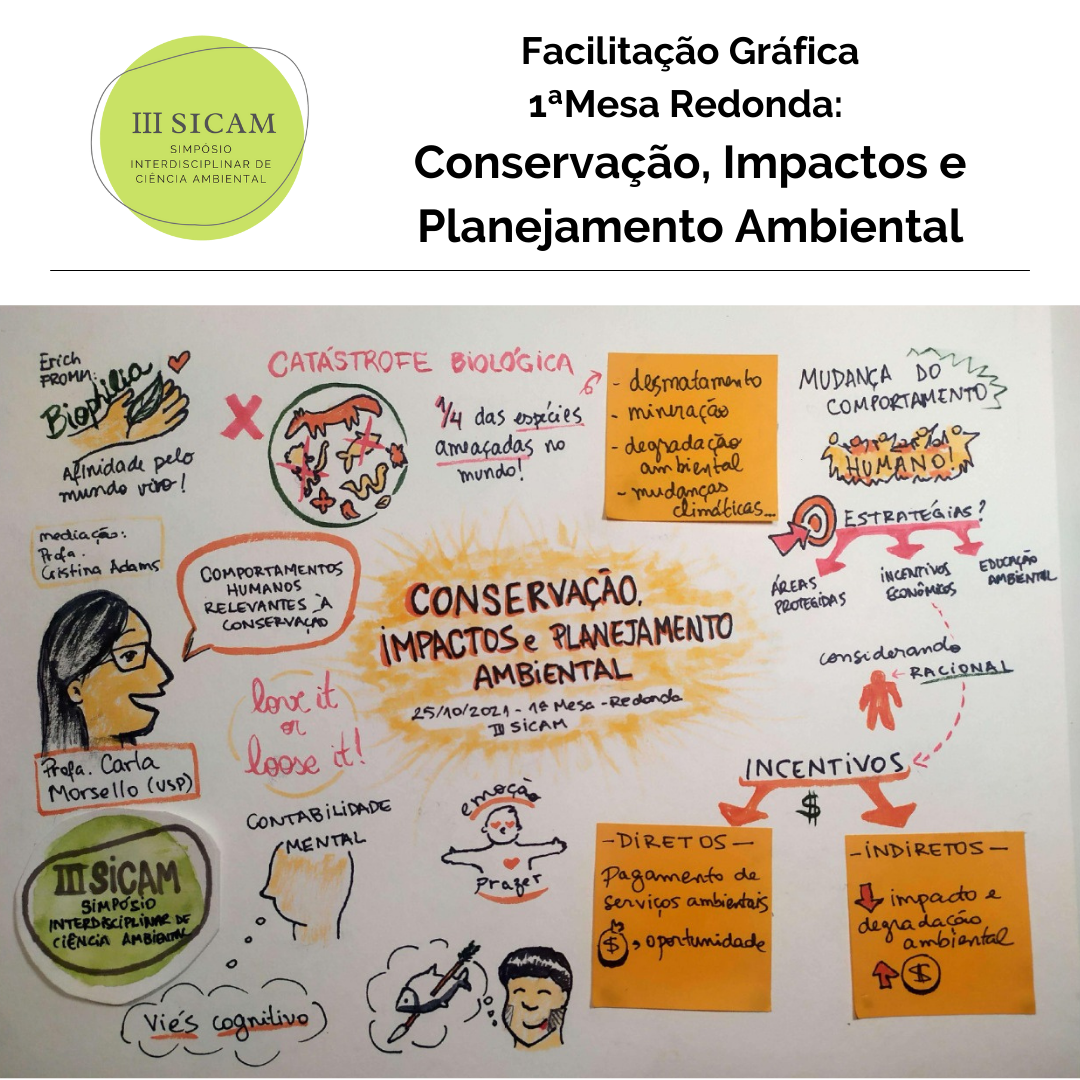 III SICAM
SIMPÓSIO
INTERDISCIPLINAR DE
CIÊNCIA AMBIENTAL
Facilitação Gráfica
1ªMesa Redonda:
Conservação, Impactos e
Planejamento Ambiental
Erich
FROMM:
Biophilia
Afinidade pelo
mundo vivo!
X
CATÁSTROFE BIOLÓGICA
1/4 das espécies
ameaçadas no
mundo!
- desmatamento
- mineração
- degradação
ambiental
- mudanças
climáticas...
MUDANÇA DO
COMPORTAMENTO
HUMANO!
ESTRATÉGIAS?
ÁREAS
PROTEGIDAS
INCENTIVOS
ECONÔMICOS
EDUCAÇÃO
AMBIENTAL
mediação:
Profa.
Cristina Adams
COMPORTAMENTOS
HUMANOS
RELEVANTES À
CONSERVAÇÃO
CONSERVAÇÃO,
IMPACTOS e PLANEJAMENTO
AMBIENTAL
25/10/2021 - 1ª Mesa - Redonda
III SICAM
considerando
RACIONAL
love it
or
loose it!
Profa. Carla
Morsello (USP)
INCENTIVOS
$
CONTABILIDADE
MENTAL
emoção
prazer
- DIRETOS -
Pagamento de
serviços ambientais
$, oportunidade
- INDIRETOS -
impacto e
degradação
ambiental
$
III SICAM
SIMPÓSIO
INTERDISCIPLINAR DE
CIÊNCIA AMBIENTAL
Viés cognitivo